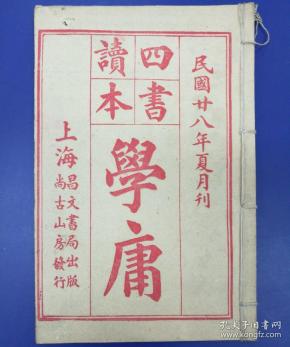 民國廿八年夏月刊
四書
讀本
學庸
上海
昌文書局出版
尚古山房發行
孔夫子旧书网